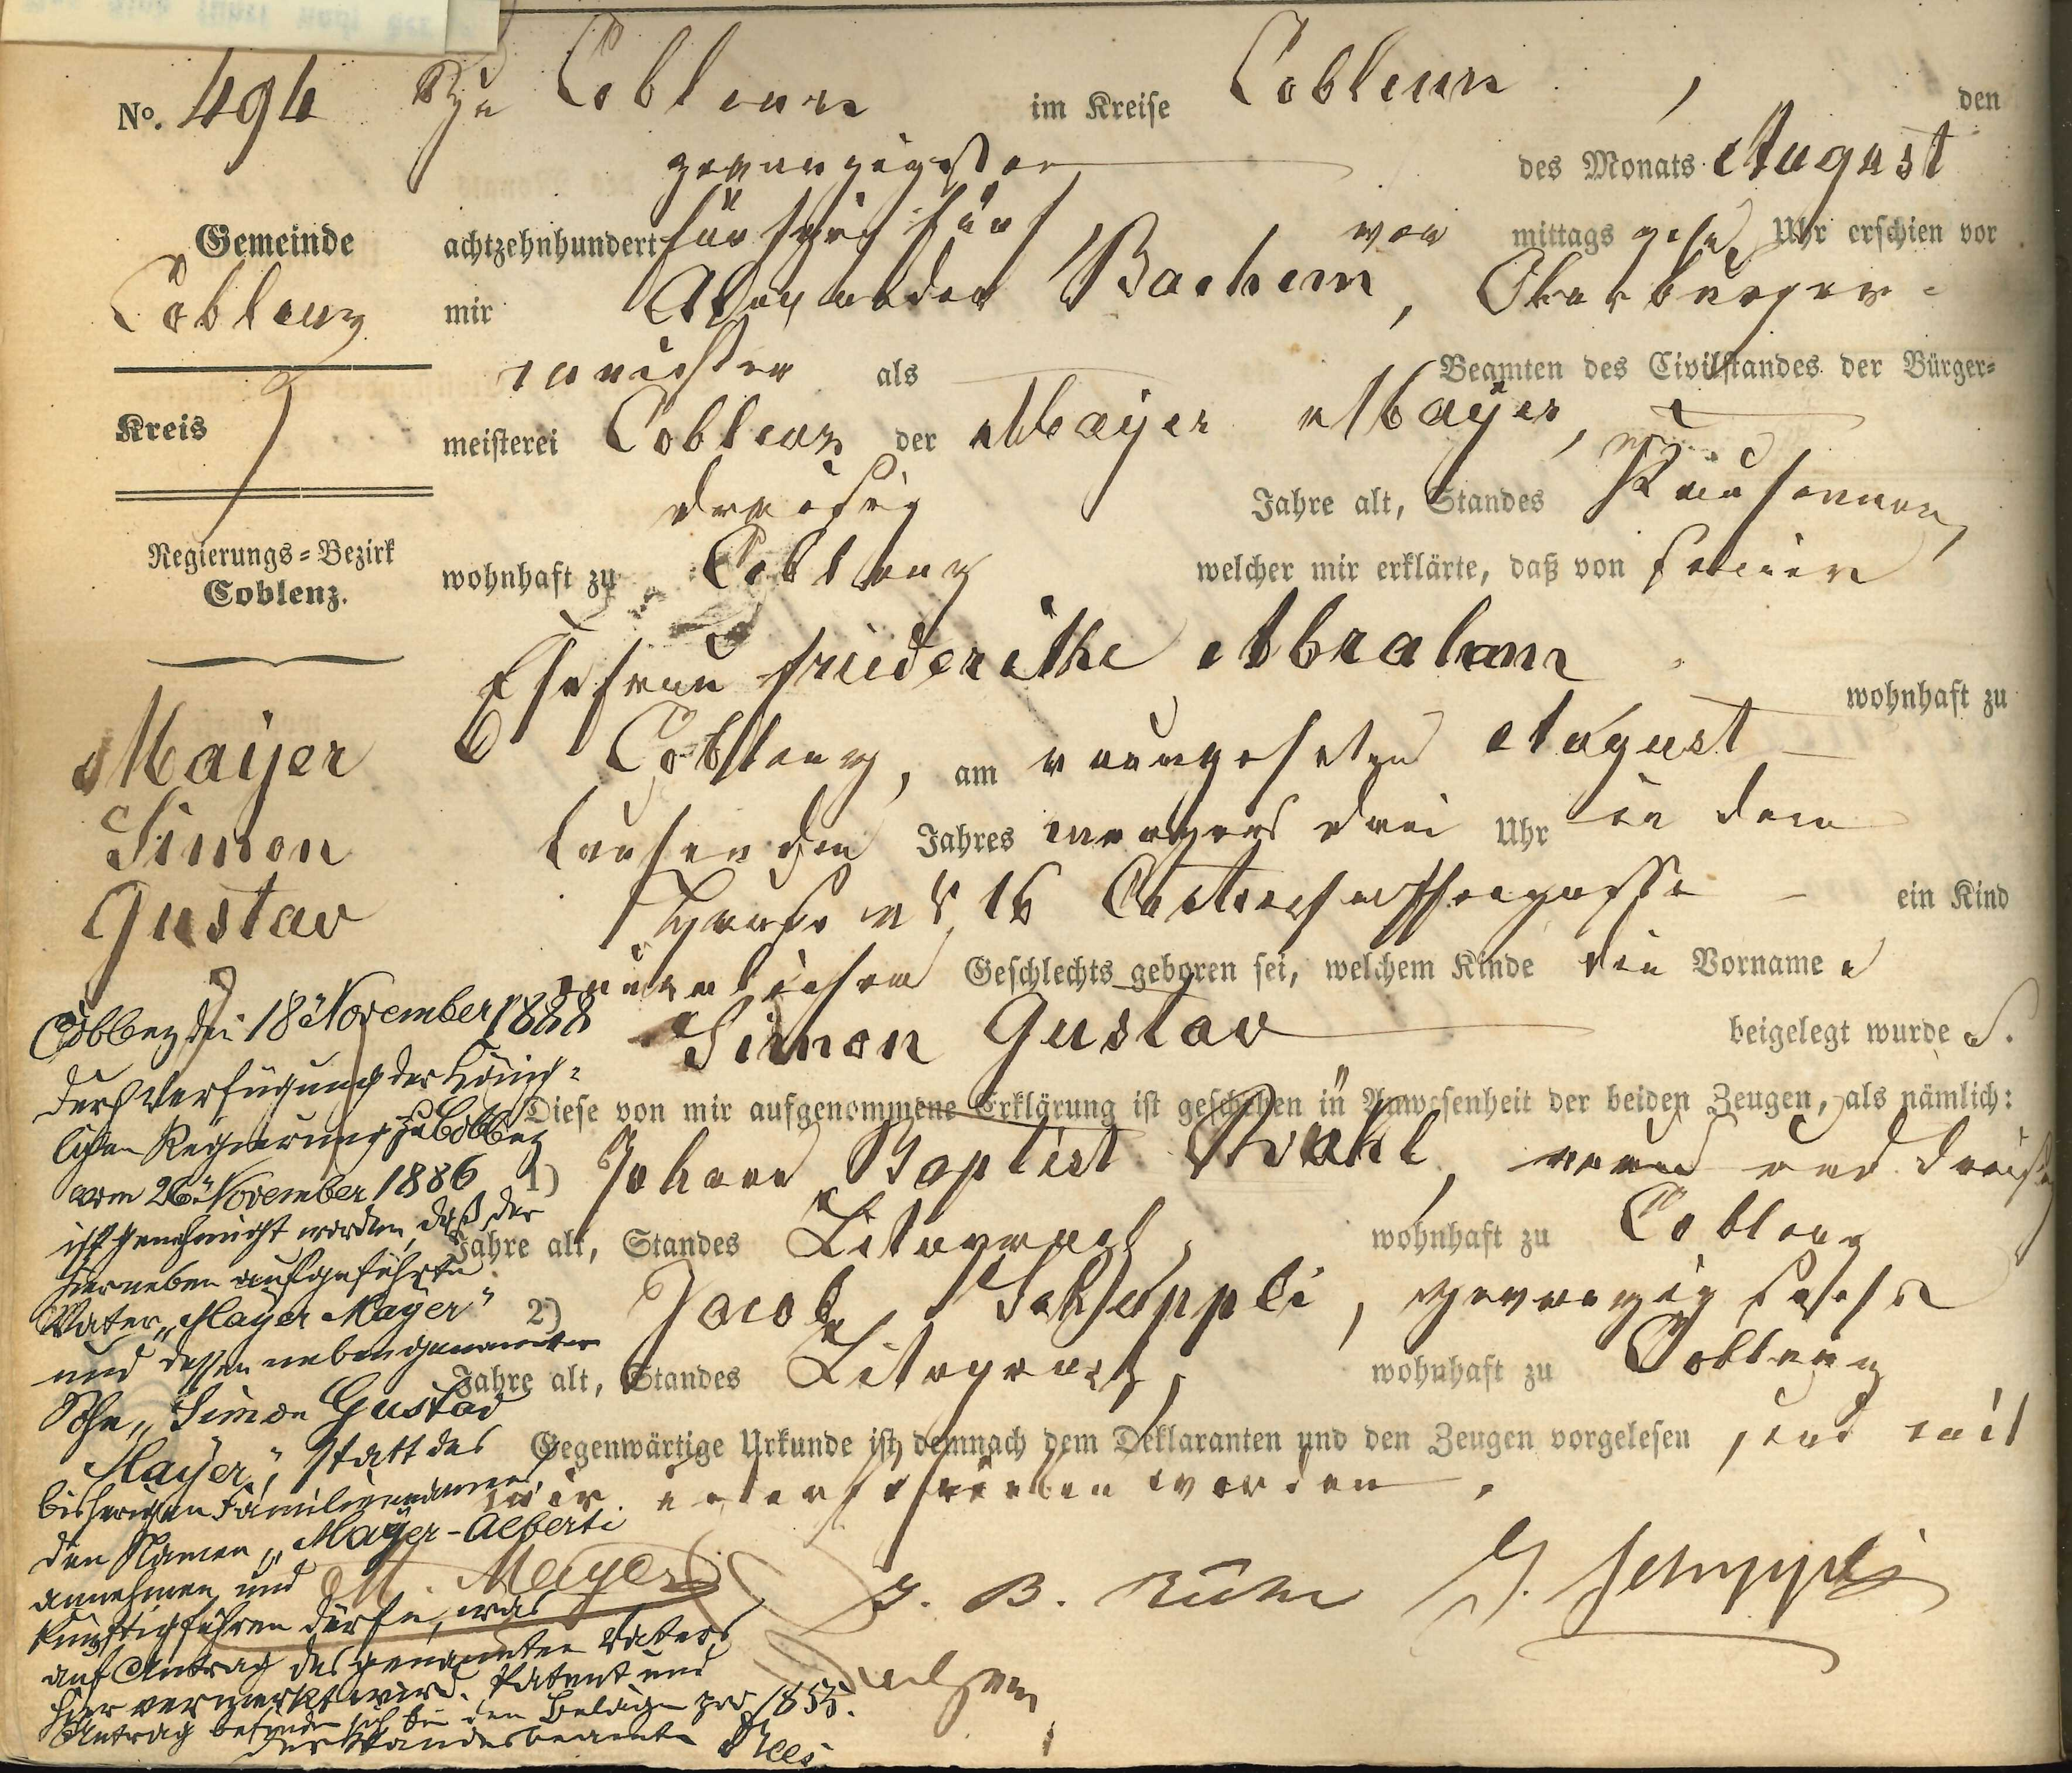 No. 494 Zu Coblenz im Kreise Coblenz, den
zwanzigsten des Monats August
Gemeinde achtzehnhundert fünfzig fünf, vor mittags zehn Uhr erschien vor
Coblenz mir Alexander Bachem, Oberbürger-
meister als Beamten des Civilstandes der Bürger-
Kreis meisterei Coblenz der Mayer Mayer,
dreißig Jahre alt, Standes Kaufmann,
Regierungs-Bezirk
Coblenz.
wohnhaft zu Coblenz welcher mir erklärte, daß von seiner
Ehefrau Friederike Abraham wohnhaft zu
Coblenz, am neunzehnten August
laufenden Jahres morgens drei Uhr in dem
Hause No 16 ein Kind
männlichen Geschlechts geboren sei, welchem Kinde die Vorname n
Simon Gustav beigelegt wurde n.
Mayer
Simon
Gustav
Diese von mir aufgenommene Erklärung ist geschehen in Anwesenheit der beiden Zeugen, als nämlich:
1) Johann Baptist neun und dreißig
Jahre alt, Standes Litograph, wohnhaft zu Coblenz
2) Jacob Schüppli, zwanzig sechs
Jahre alt, Standes Litograph, wohnhaft zu Coblenz
Gegenwärtige Urkunde ist demnach dem Deklaranten und den Zeugen vorgelesen, und mit
mir unterschrieben worden.
M. Mayer J. B. J. Schüppli
Bachem
Coblenz den 18 November 1888
Durch Verfügung der König-
lichen Regierung zu Coblenz
vom 26 November 1886
ist genehmigt worden, daß der
hierneben aufgeführte
Vater "Mayer Mayer"
und dessen nebengenannter
Sohn "Simon Gustav
Mayer", statt des
bisherigen Familiennamens
den Namen "Mayer-Alberti
annehmen und
künftig führen dürfe, was
auf Antrag des genannten Vaters
hier vermerkt wird. Patent und
Antrag befinden sich bei den Belägen pro 1855.
Der Standesbeamte